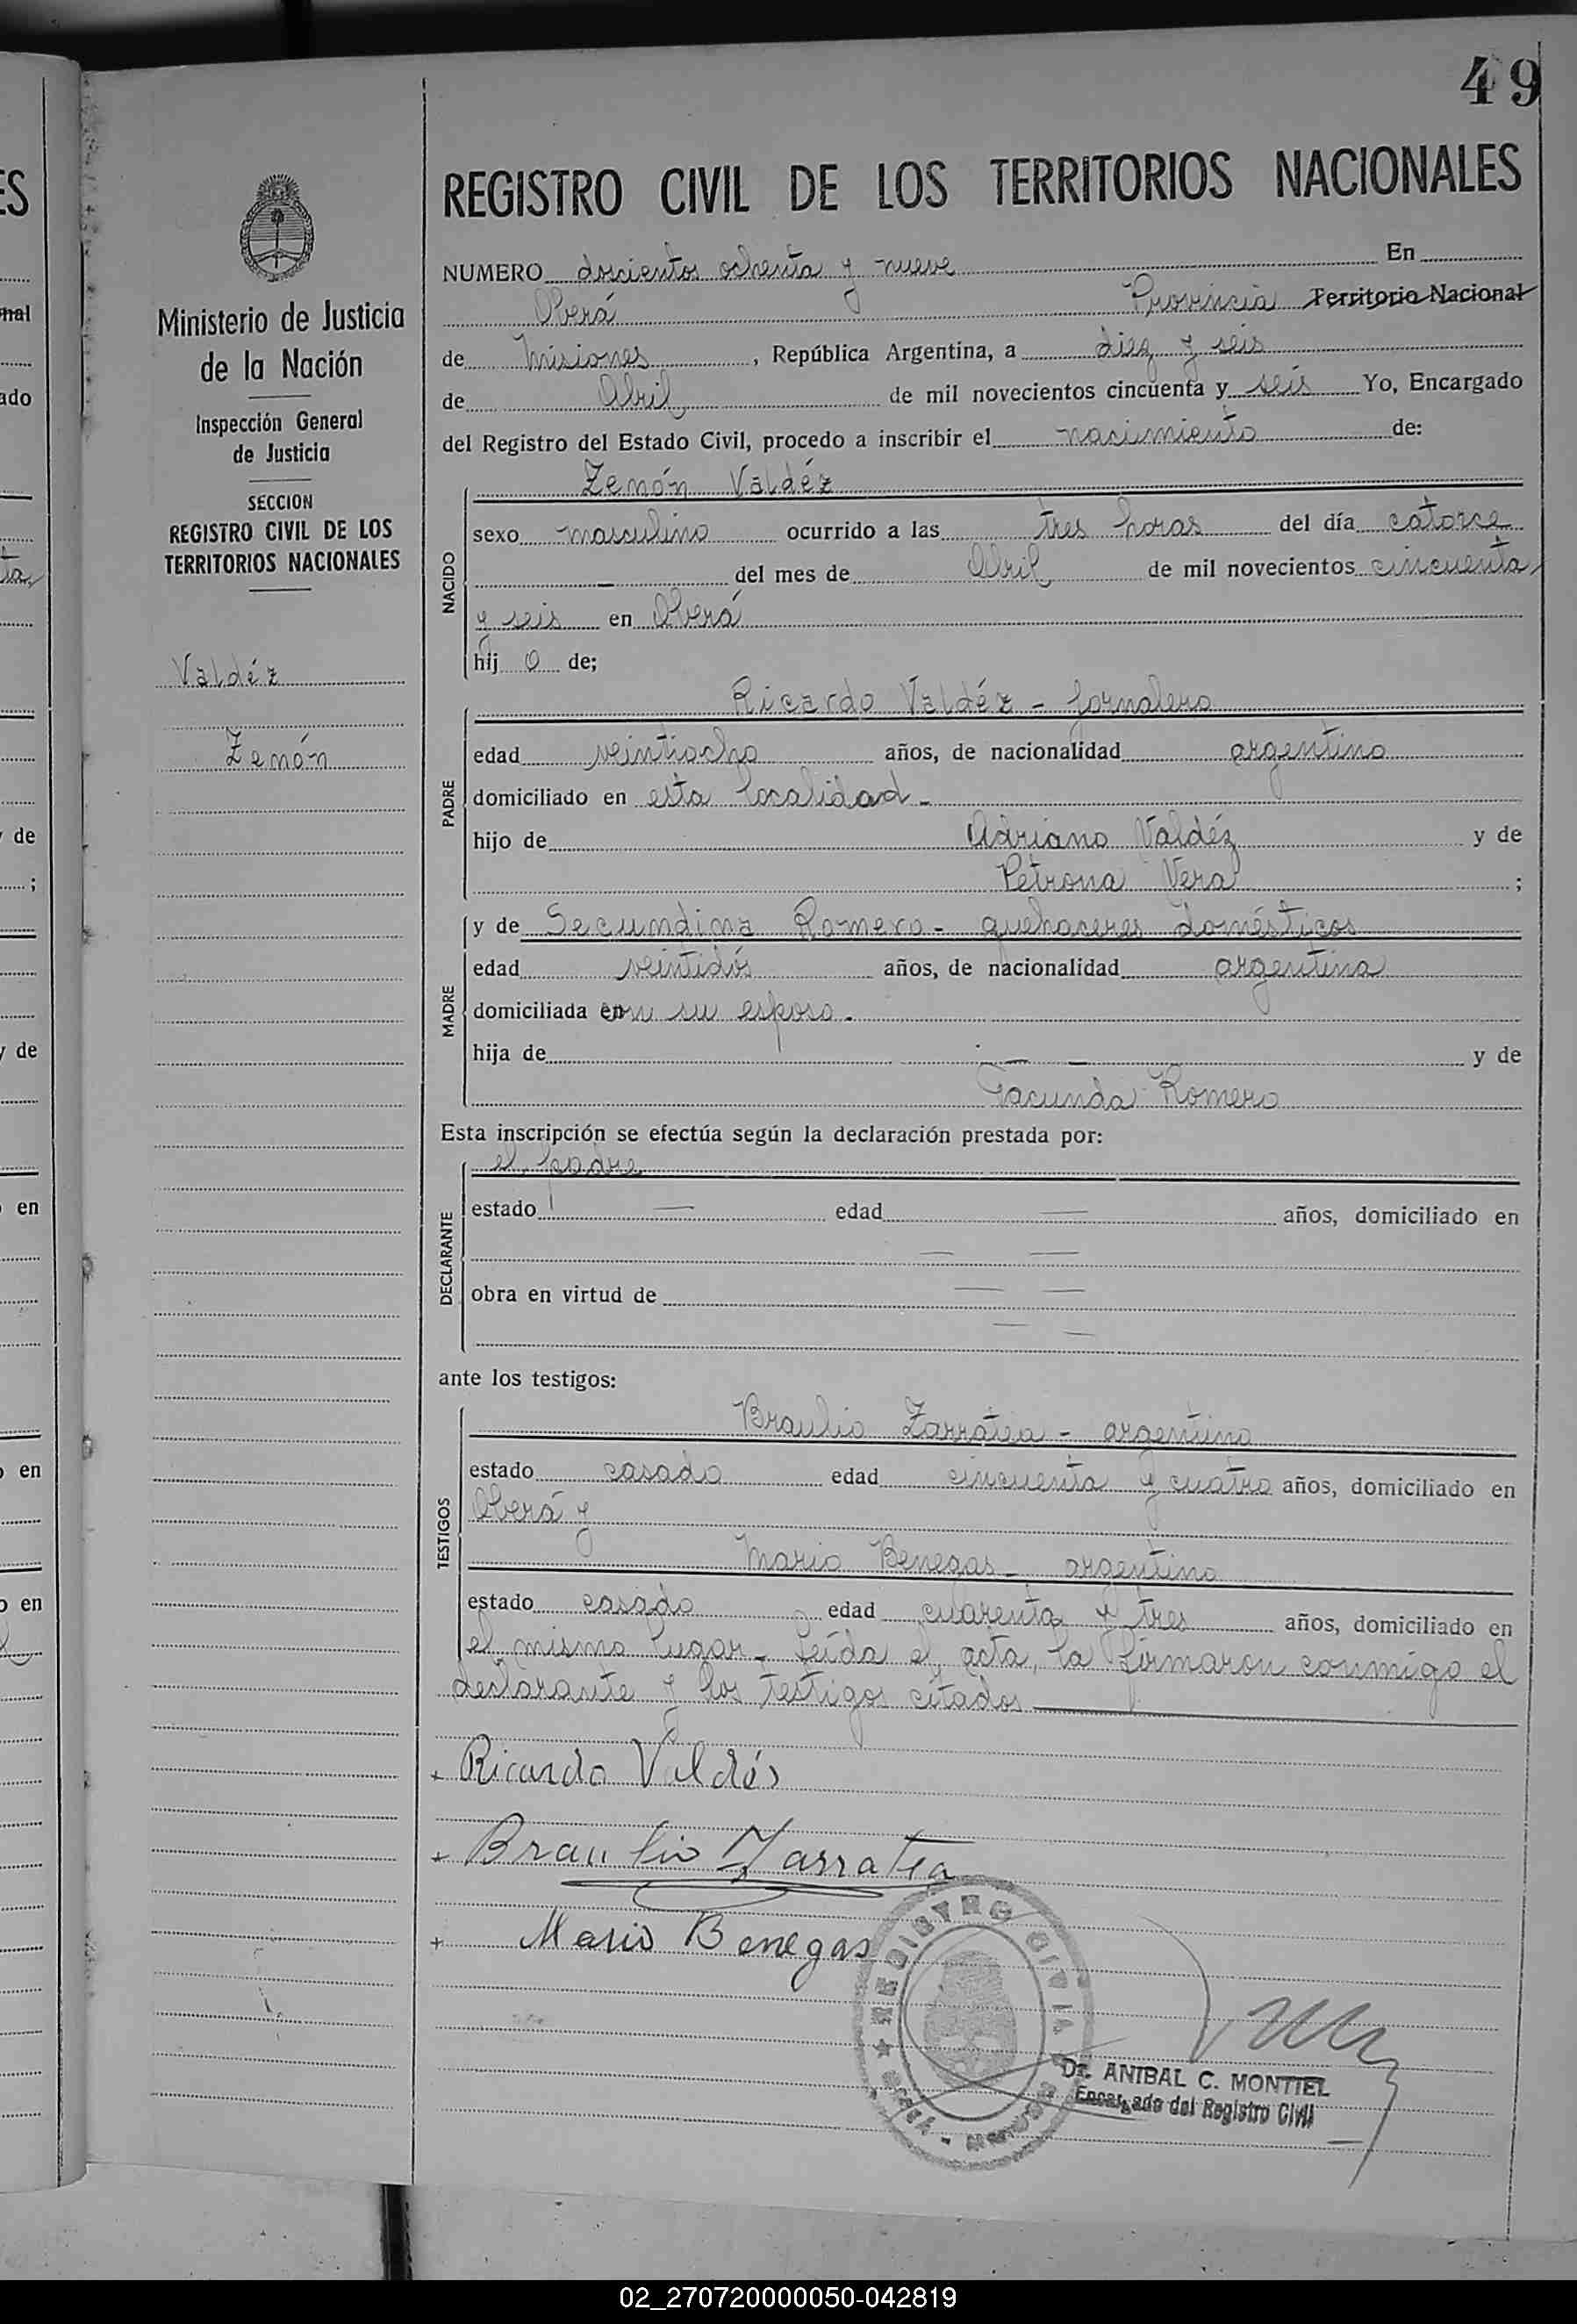 49
REGISTRO CIVIL DE LOS TERRITORIOS NACIONALES
NUMERO doscientos ochenta y nueve En
Oberá Provincia Territorio Nacional
de Misiones, República Argentina, a diez y seis
de Abril de mil novecientos cincuenta y seis Yo, Encargado
del Registro del Estado Civil, procedo a inscribir el nacimiento de:
Zenón Valdéz
NACIDO
sexo masculino ocurrido a las tres horas del día catorce
— del mes de Abril de mil novecientos cincuenta
y seis en Oberá
hij o de;
Ricardo Valdéz - Jornalero
PADRE
edad veintiocho años, de nacionalidad argentino
domiciliado en esta localidad -
hijo de Adriano Valdéz y de
Petrona Vera ;
y de Secundina Romero - quehaceres domésticos
MADRE
edad veintidós años, de nacionalidad argentina
domiciliada con su esposo.
hija de — — y de
Facunda Romero
Esta inscripción se efectúa según la declaración prestada por:
el padre
DECLARANTE
estado — edad — años, domiciliado en
— —
obra en virtud de — —
— —
ante los testigos:
Braulio Zarratea - argentino
TESTIGOS
estado casado edad cincuenta y cuatro años, domiciliado en
Oberá y
Mario Benegas - argentino
estado casado edad cuarenta y tres años, domiciliado en
el mismo lugar - Leída el acta, la firmaron conmigo el
declarante y los testigos citados
Ricardo Valdés
Braulio Zarratea
Mario Benegas
REGISTRO CIVIL
Dr. ANIBAL C. MONTIEL
Encargado del Registro Civil
Ministerio de Justicia
de la Nación
Inspección General
de Justicia
SECCION
REGISTRO CIVIL DE LOS
TERRITORIOS NACIONALES
Valdéz
Zenón
ES
nal
ado
ta,
y de
;
y de
en
o en
o en
02_270720000050-042819